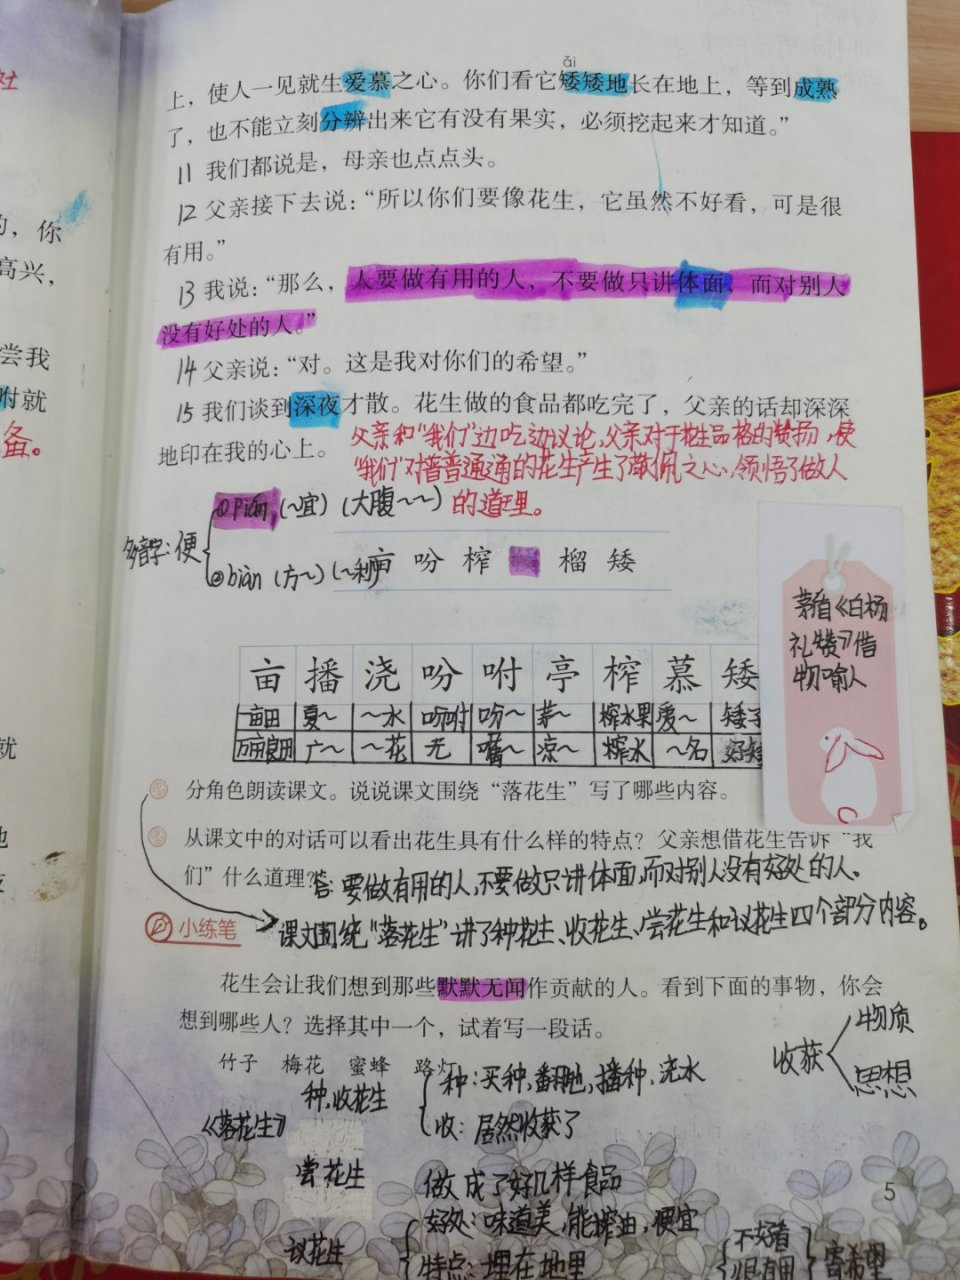 ǎi
上，使人一见就生爱慕之心。你们看它矮矮地长在地上，等到成熟
了，也不能立刻分辨出来它有没有果实，必须挖起来才知道。”
11 我们都说是，母亲也点点头。
12 父亲接下去说：“所以你们要像花生，它虽然不好看，可是很
有用。”
13 我说：“那么，人要做有用的人，不要做只讲体面，而对别人
没有好处的人。”
14 父亲说：“对。这是我对你们的希望。”
15 我们谈到深夜才散。花生做的食品都吃完了，父亲的话却深深
地印在我的心上。
父亲和“我们”边吃边议论，父亲对于花生品格的赞扬，使
“我们”对普普通通的花生产生了敬佩之心，领悟了做人
的道理。
多音字：便
①pián（～宜）（大腹～～）
②biàn（方～）（～利）
亩 吩 榨 榴 矮
茅盾《白杨
礼赞》借
物喻人
亩 播 浇 吩 咐 亭 榨 慕 矮
亩田 夏～ ～水 吩咐 吩～ 茅～ 榨水果 爱～ 矮子
万亩良田 广～ ～花 无 嘱～ 凉～ 榨水 ～名 好矮
分角色朗读课文。说说课文围绕“落花生”写了哪些内容。
从课文中的对话可以看出花生具有什么样的特点？父亲想借花生告诉“我
们”什么道理？
答：要做有用的人，不要做只讲体面，而对别人没有好处的人。
小练笔
课文围绕“落花生”讲了种花生、收花生、尝花生和议花生四个部分内容。
花生会让我们想到那些默默无闻作贡献的人。看到下面的事物，你会
想到哪些人？选择其中一个，试着写一段话。
竹子 梅花 蜜蜂 路灯
收获
物质
思想
《落花生》
种、收花生
种：买种，翻地，播种，浇水
收：居然收获了
尝花生
做成了好几样食品
议花生
好处：味道美，能榨油，便宜
特点：埋在地里
不好看
很有用
寄希望
5
的，你
高兴，
尝我
咐就
备。
就
地